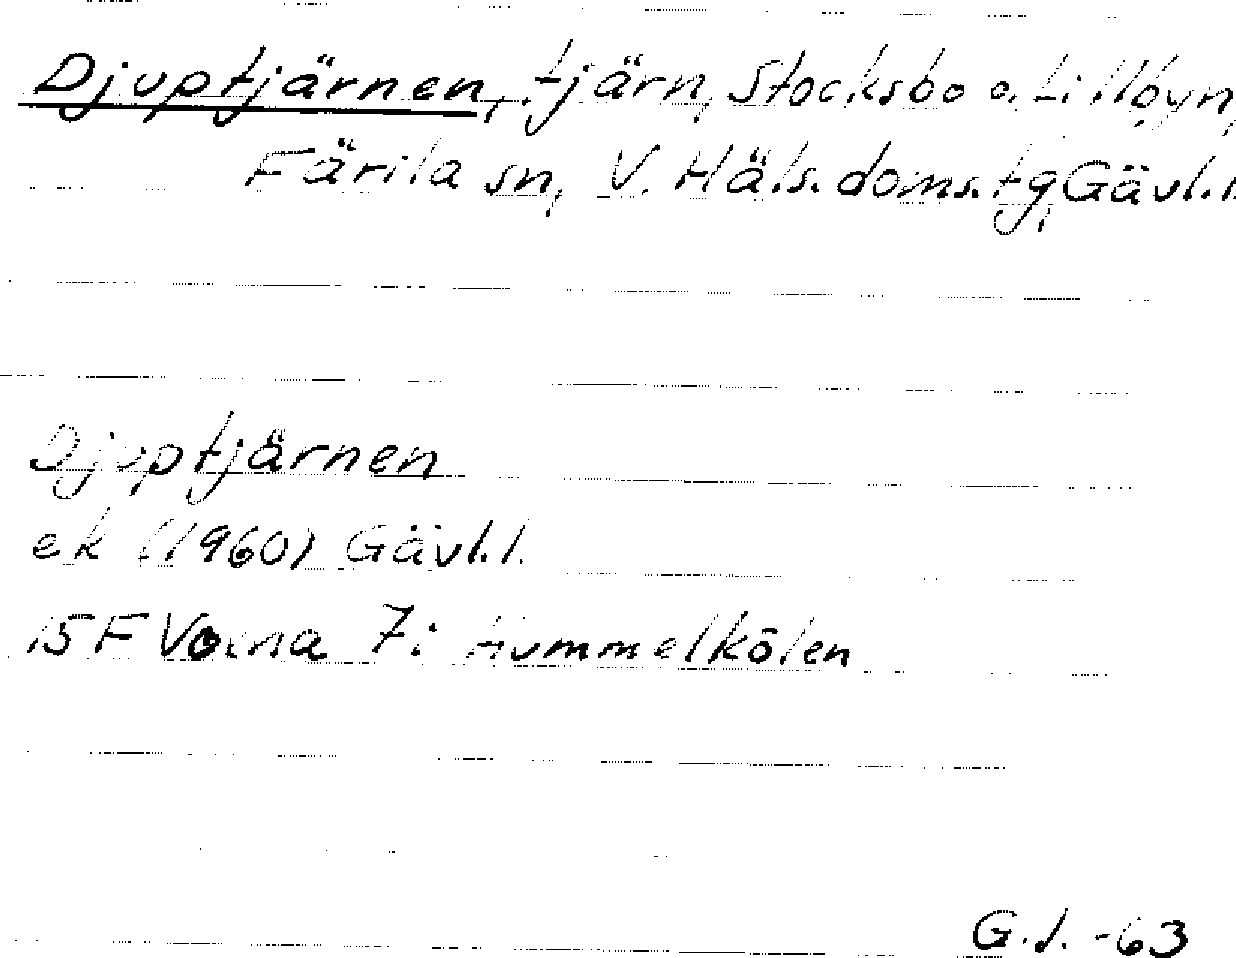 Djuptjärnen, tjärn, Stocksbo o. Lillöyn,
Färila sn, V. Häls. doms. tg, Gävl.l.
Djuptjärnen
ek (1960) Gävl.l.
15F Voxna 7: Hummelkölen
G.J. -63